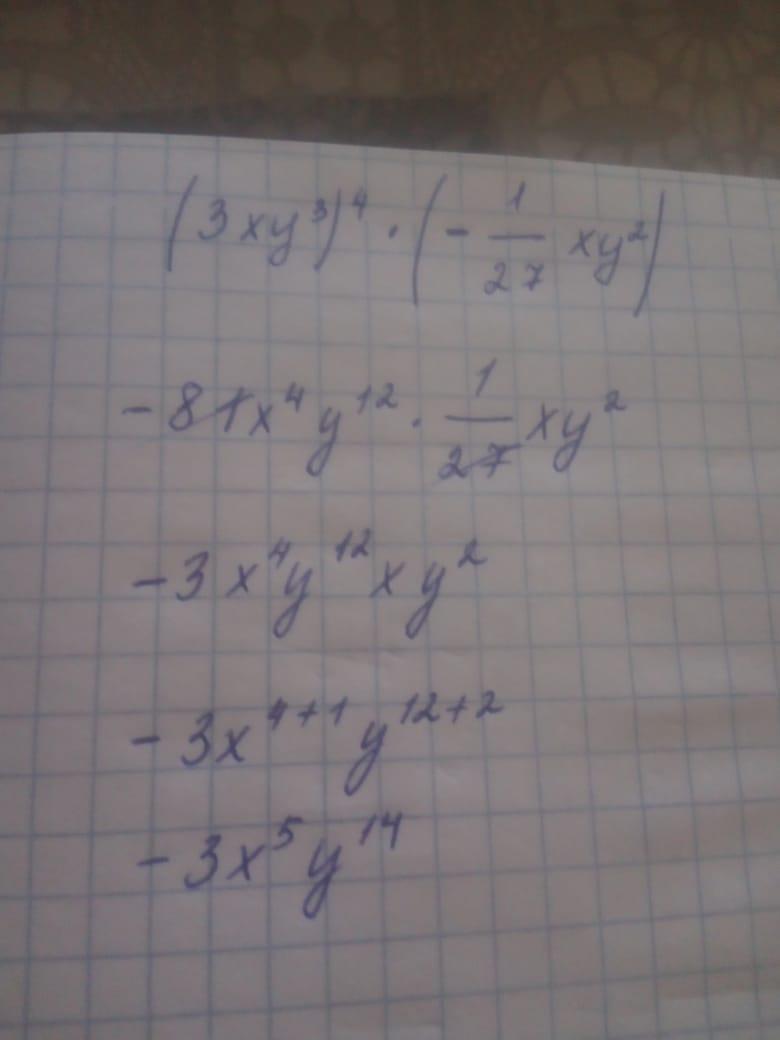 (3xy³)⁴ · (- 1/27 xy²)
-81x⁴y¹² · 1/27 xy²
-3x⁴y¹²xy²
-3x⁴⁺¹y¹²⁺²
-3x⁵y¹⁴